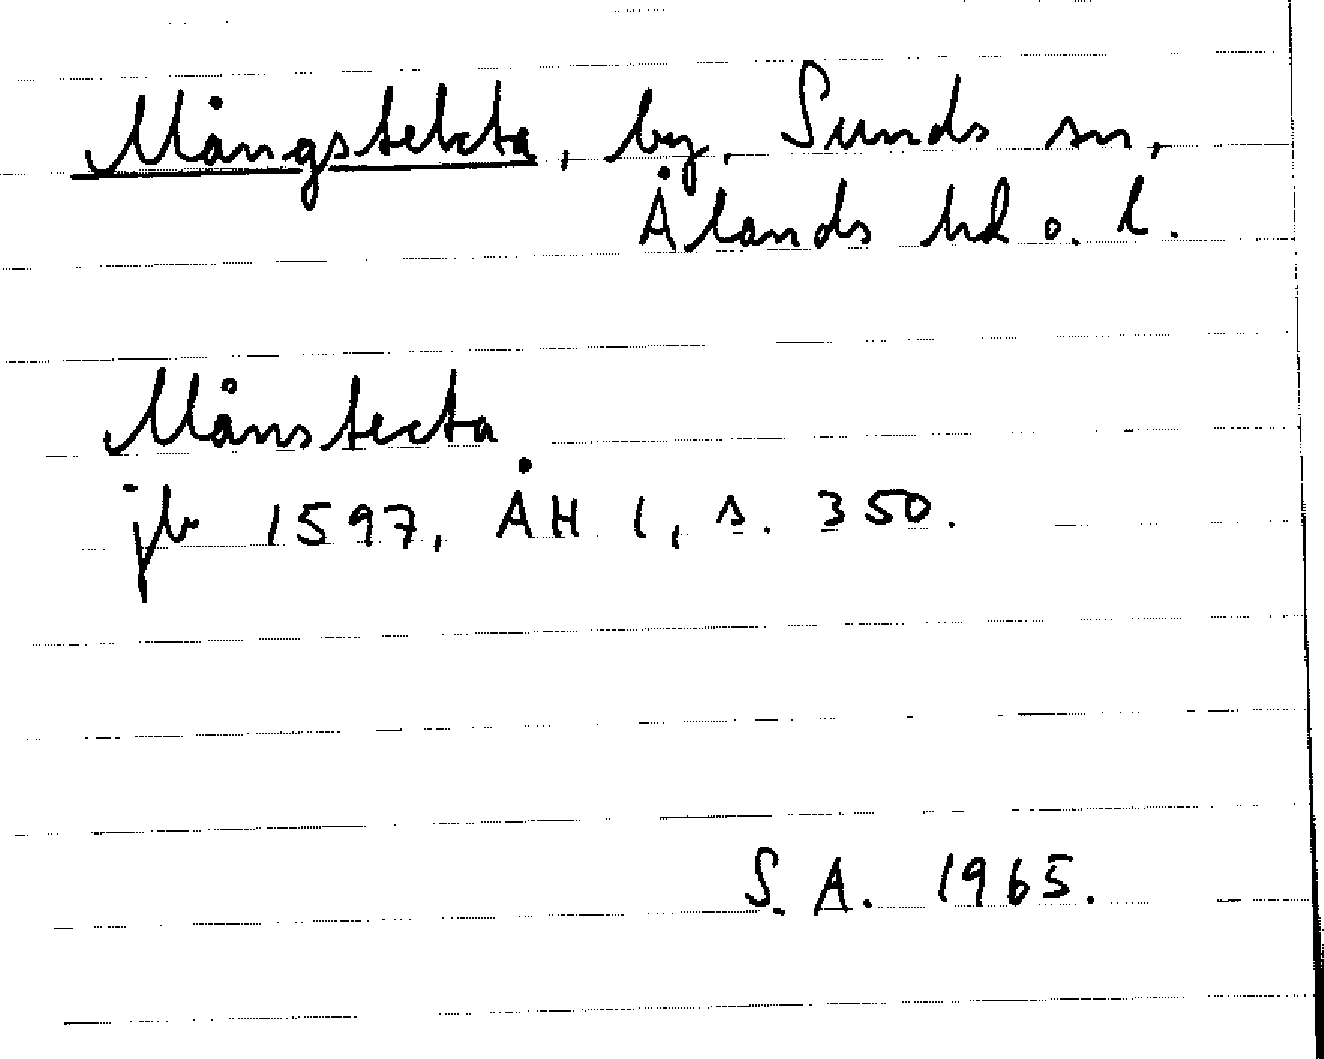 Mångstekta, by, Sunds sn,
Ålands hd o. l.
Månstecta
jb 1597, ÅH 1, s. 350.
S. A. 1965.